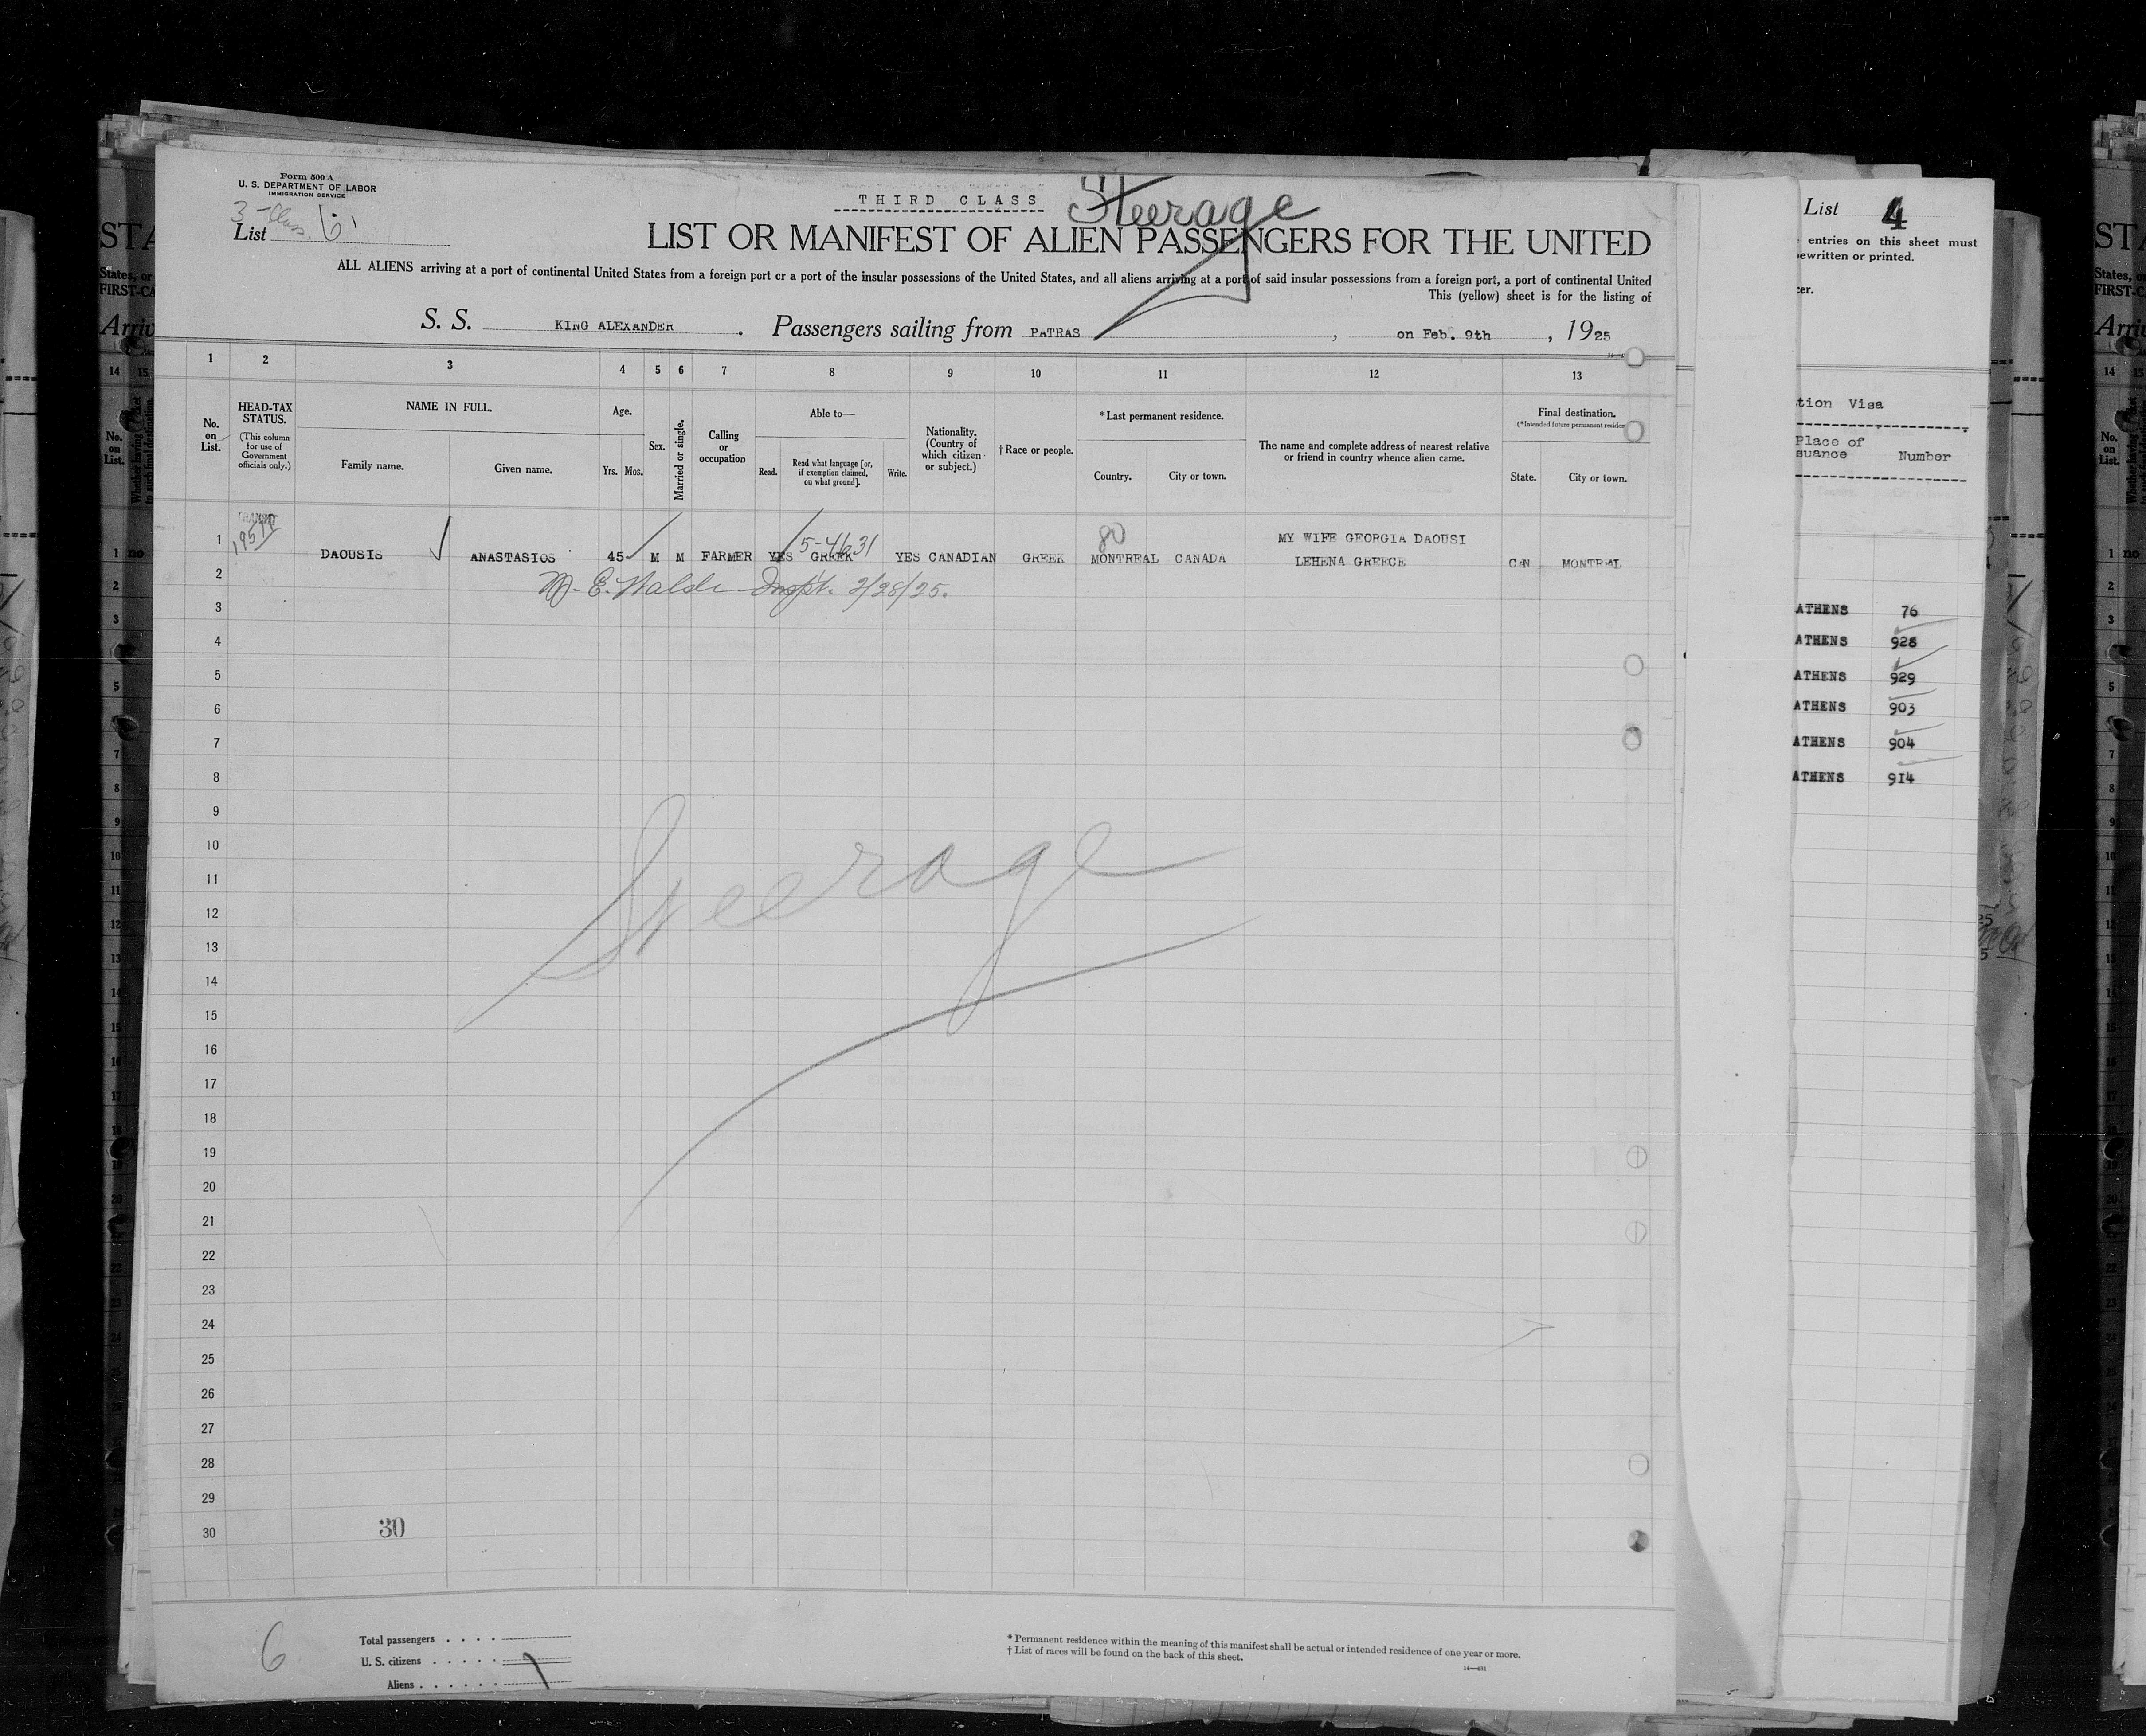 Form 500 A
U. S. DEPARTMENT OF LABOR
IMMIGRATION SERVICE
3-Class
List 6
THIRD CLASS
Steerage
LIST OR MANIFEST OF ALIEN PASSENGERS FOR THE UNITED
ALL ALIENS arriving at a port of continental United States from a foreign port or a port of the insular possessions of the United States, and all aliens arriving at a port of said insular possessions from a foreign port, a port of continental United
This (yellow) sheet is for the listing of
S. S. KING ALEXANDER. Passengers sailing from PATRAS, on Feb. 9th, 1925
1 2 3 4 5 6 7 8 9 10 11 12 13
No. on List.
HEAD-TAX STATUS.
(This column for use of Government officials only.)
NAME IN FULL.
Family name.
Given name.
Age.
Yrs. Mos.
Sex.
Married or single.
Calling or occupation
Able to—
Read.
Read what language [or, if exemption claimed, on what ground].
Write.
Nationality. (Country of which citizen or subject.)
† Race or people.
*Last permanent residence.
Country.
City or town.
The name and complete address of nearest relative or friend in country whence alien came.
Final destination.
(*Intended future permanent residen
State.
City or town.
TRANSIT
80
5-4631
MY WIFE GEORGIA DAOUSI
1 DAOUSIS ANASTASIOS 45 M M FARMER YES GREEK YES CANADIAN GREEK MONTREAL CANADA LEHENA GREECE CAN MONTREAL
2/28/25.
2
3
4
5
6
7
8
9
10
11
12
13
14
15
16
17
18
19
20
21
22
23
24
25
26
27
28
29
30
Steerage
30
6
Total passengers
U. S. citizens
Aliens
* Permanent residence within the meaning of this manifest shall be actual or intended residence of one year or more.
† List of races will be found on the back of this sheet.
14—431
List 4
entries on this sheet must
ewritten or printed.
cer.
tion Visa
Place of
suance Number
ATHENS 76
ATHENS 928
ATHENS 929
ATHENS 903
ATHENS 904
ATHENS 914